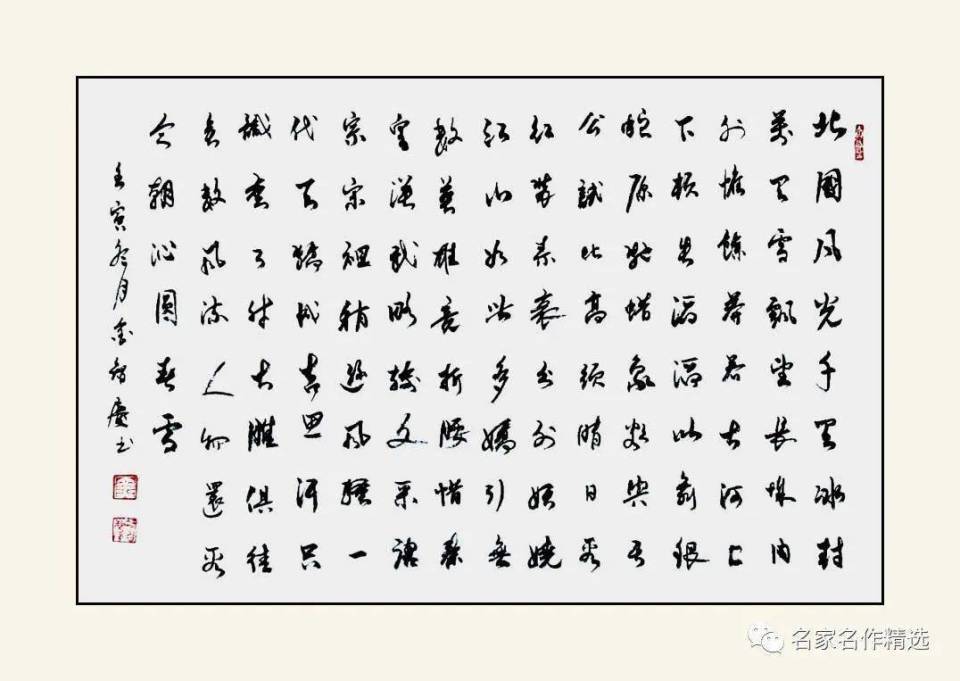 北國風光千里冰封
萬里雪飄望長城內
外惟餘莽莽大河上
下頓失滔滔山舞銀
蛇原馳蜡象欲與天
公試比高須晴日看
紅裝素裹分外妖嬈
江山如此多嬌引無
數英雄競折腰惜秦
皇漢武略輸文采唐
宗宋祖稍遜風騷一
代天驕成吉思汗只
識彎弓射大雕俱往
矣數風流人物還看
今朝沁園春雪
壬寅冬月金智慶书
名家名作精选